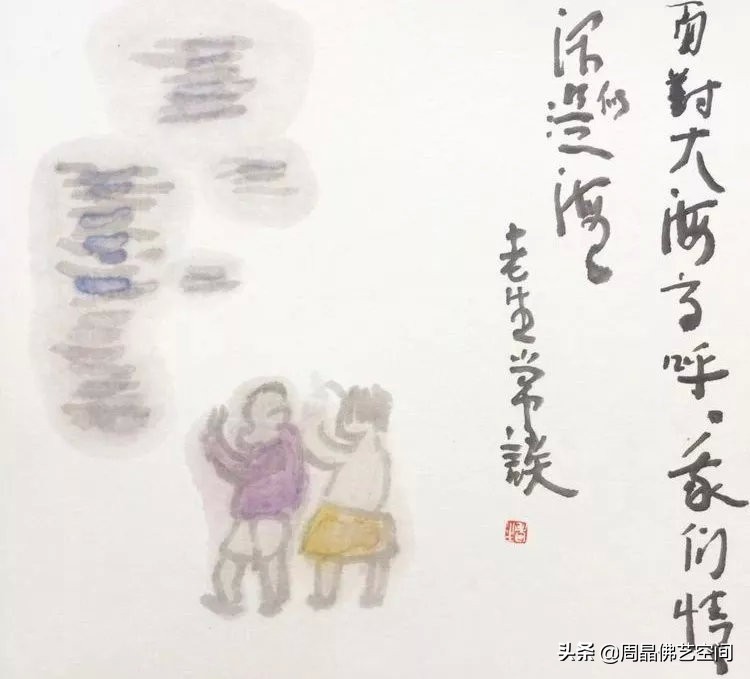 面對大海高呼、我们情
深似這海
老生常談
头条 @周晶佛艺空间